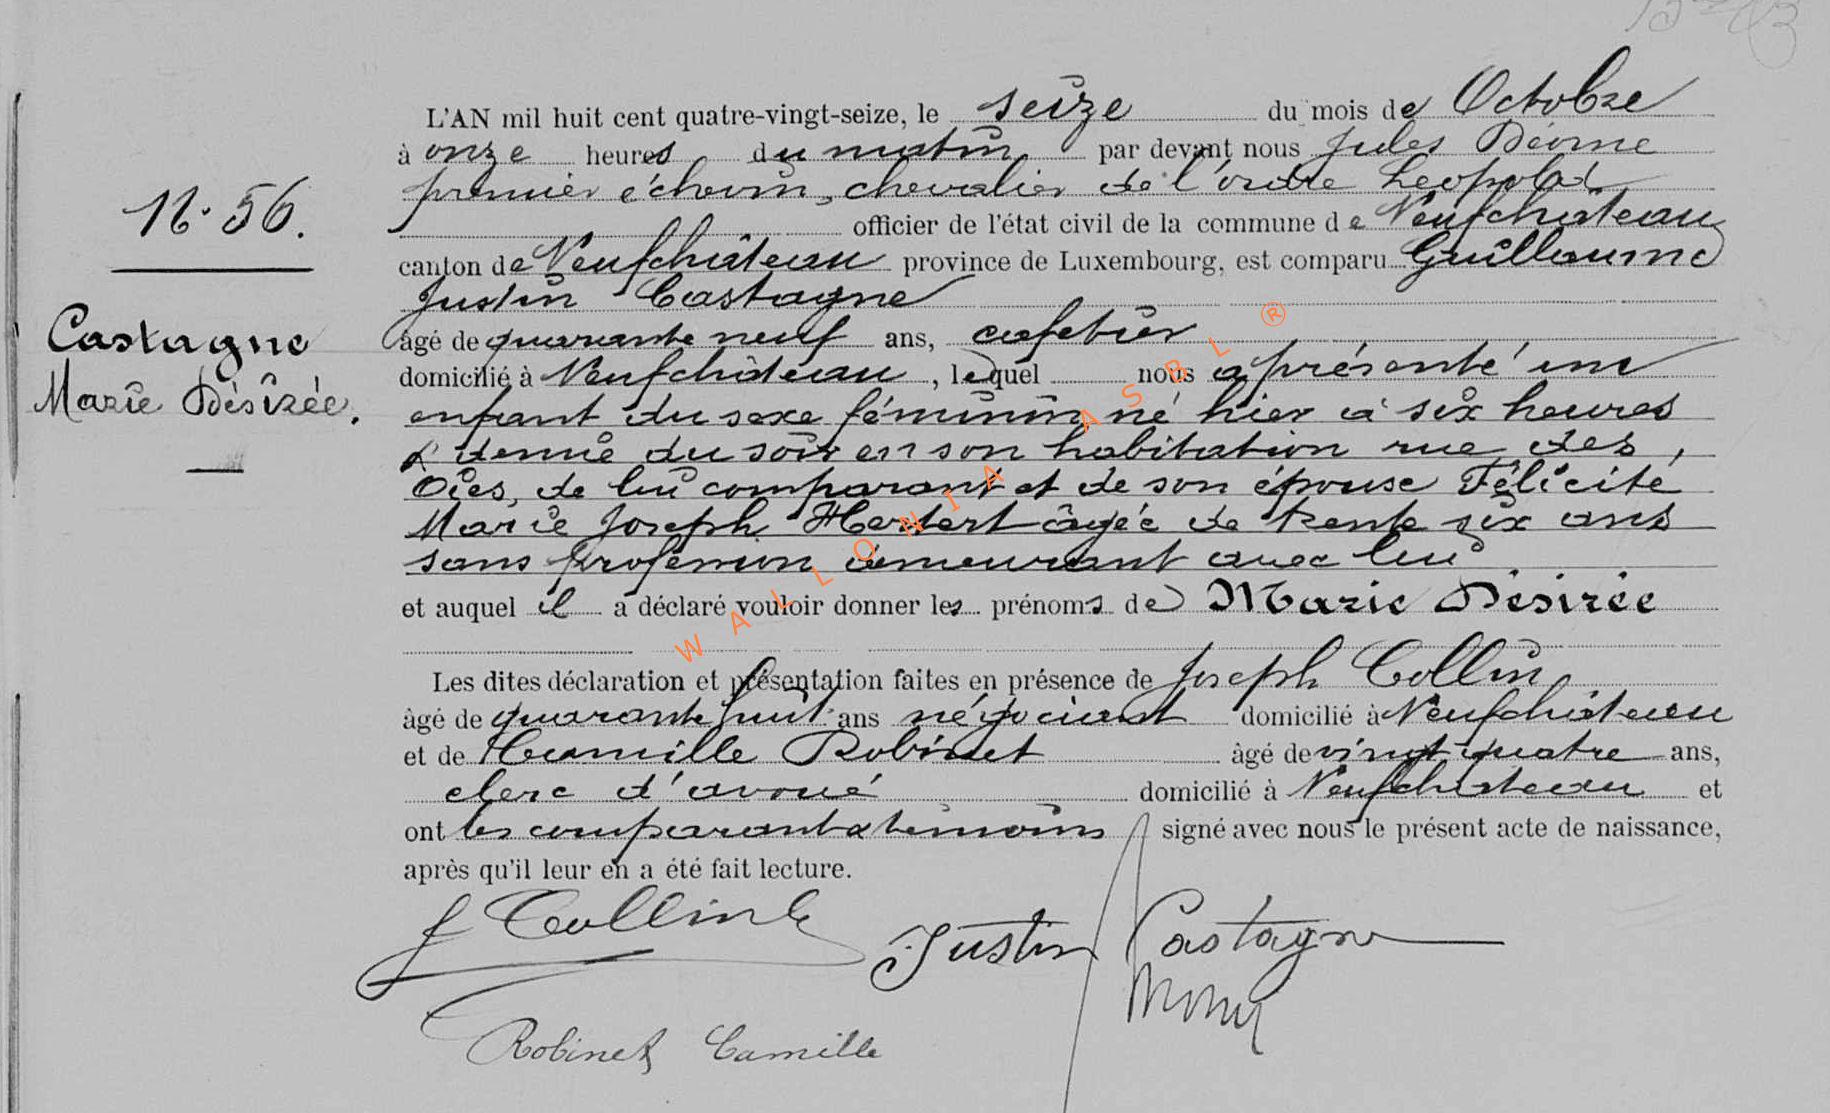 L'AN mil huit cent quatre-vingt-seize, le seize du mois de Octobre
à onze heures du matin par devant nous Jules
premier échevin, chevalier de l'ordre Léopold
officier de l'état civil de la commune de Neufchâteau
canton de Neufchâteau province de Luxembourg, est comparu Guillaume
Justin Castagne
âgé de quarante neuf ans, cafetier
domicilié à Neufchâteau, lequel nous a présenté un
enfant du sexe féminin né hier à six heures
& demie du soir en son habitation rue des
Oies, de lui comparant et de son épouse Félicité
Marie Joseph âgée de trente six ans
sans profession demeurant avec lui
et auquel il a déclaré vouloir donner les prénoms de Marie Désirée
Les dites déclaration et présentation faites en présence de Joseph Collin
âgé de quarante huit ans négociant domicilié à Neufchâteau
et de Camille Robinet âgé de vingt quatre ans,
clerc d'avoué domicilié à Neufchâteau et
ont les comparant & témoins signé avec nous le présent acte de naissance,
après qu'il leur en a été fait lecture.
N. 56.
Castagne
Marie Désirée.
J Collin
Justin Castagne
Robinet Camille
WALLONIA ASBL ®